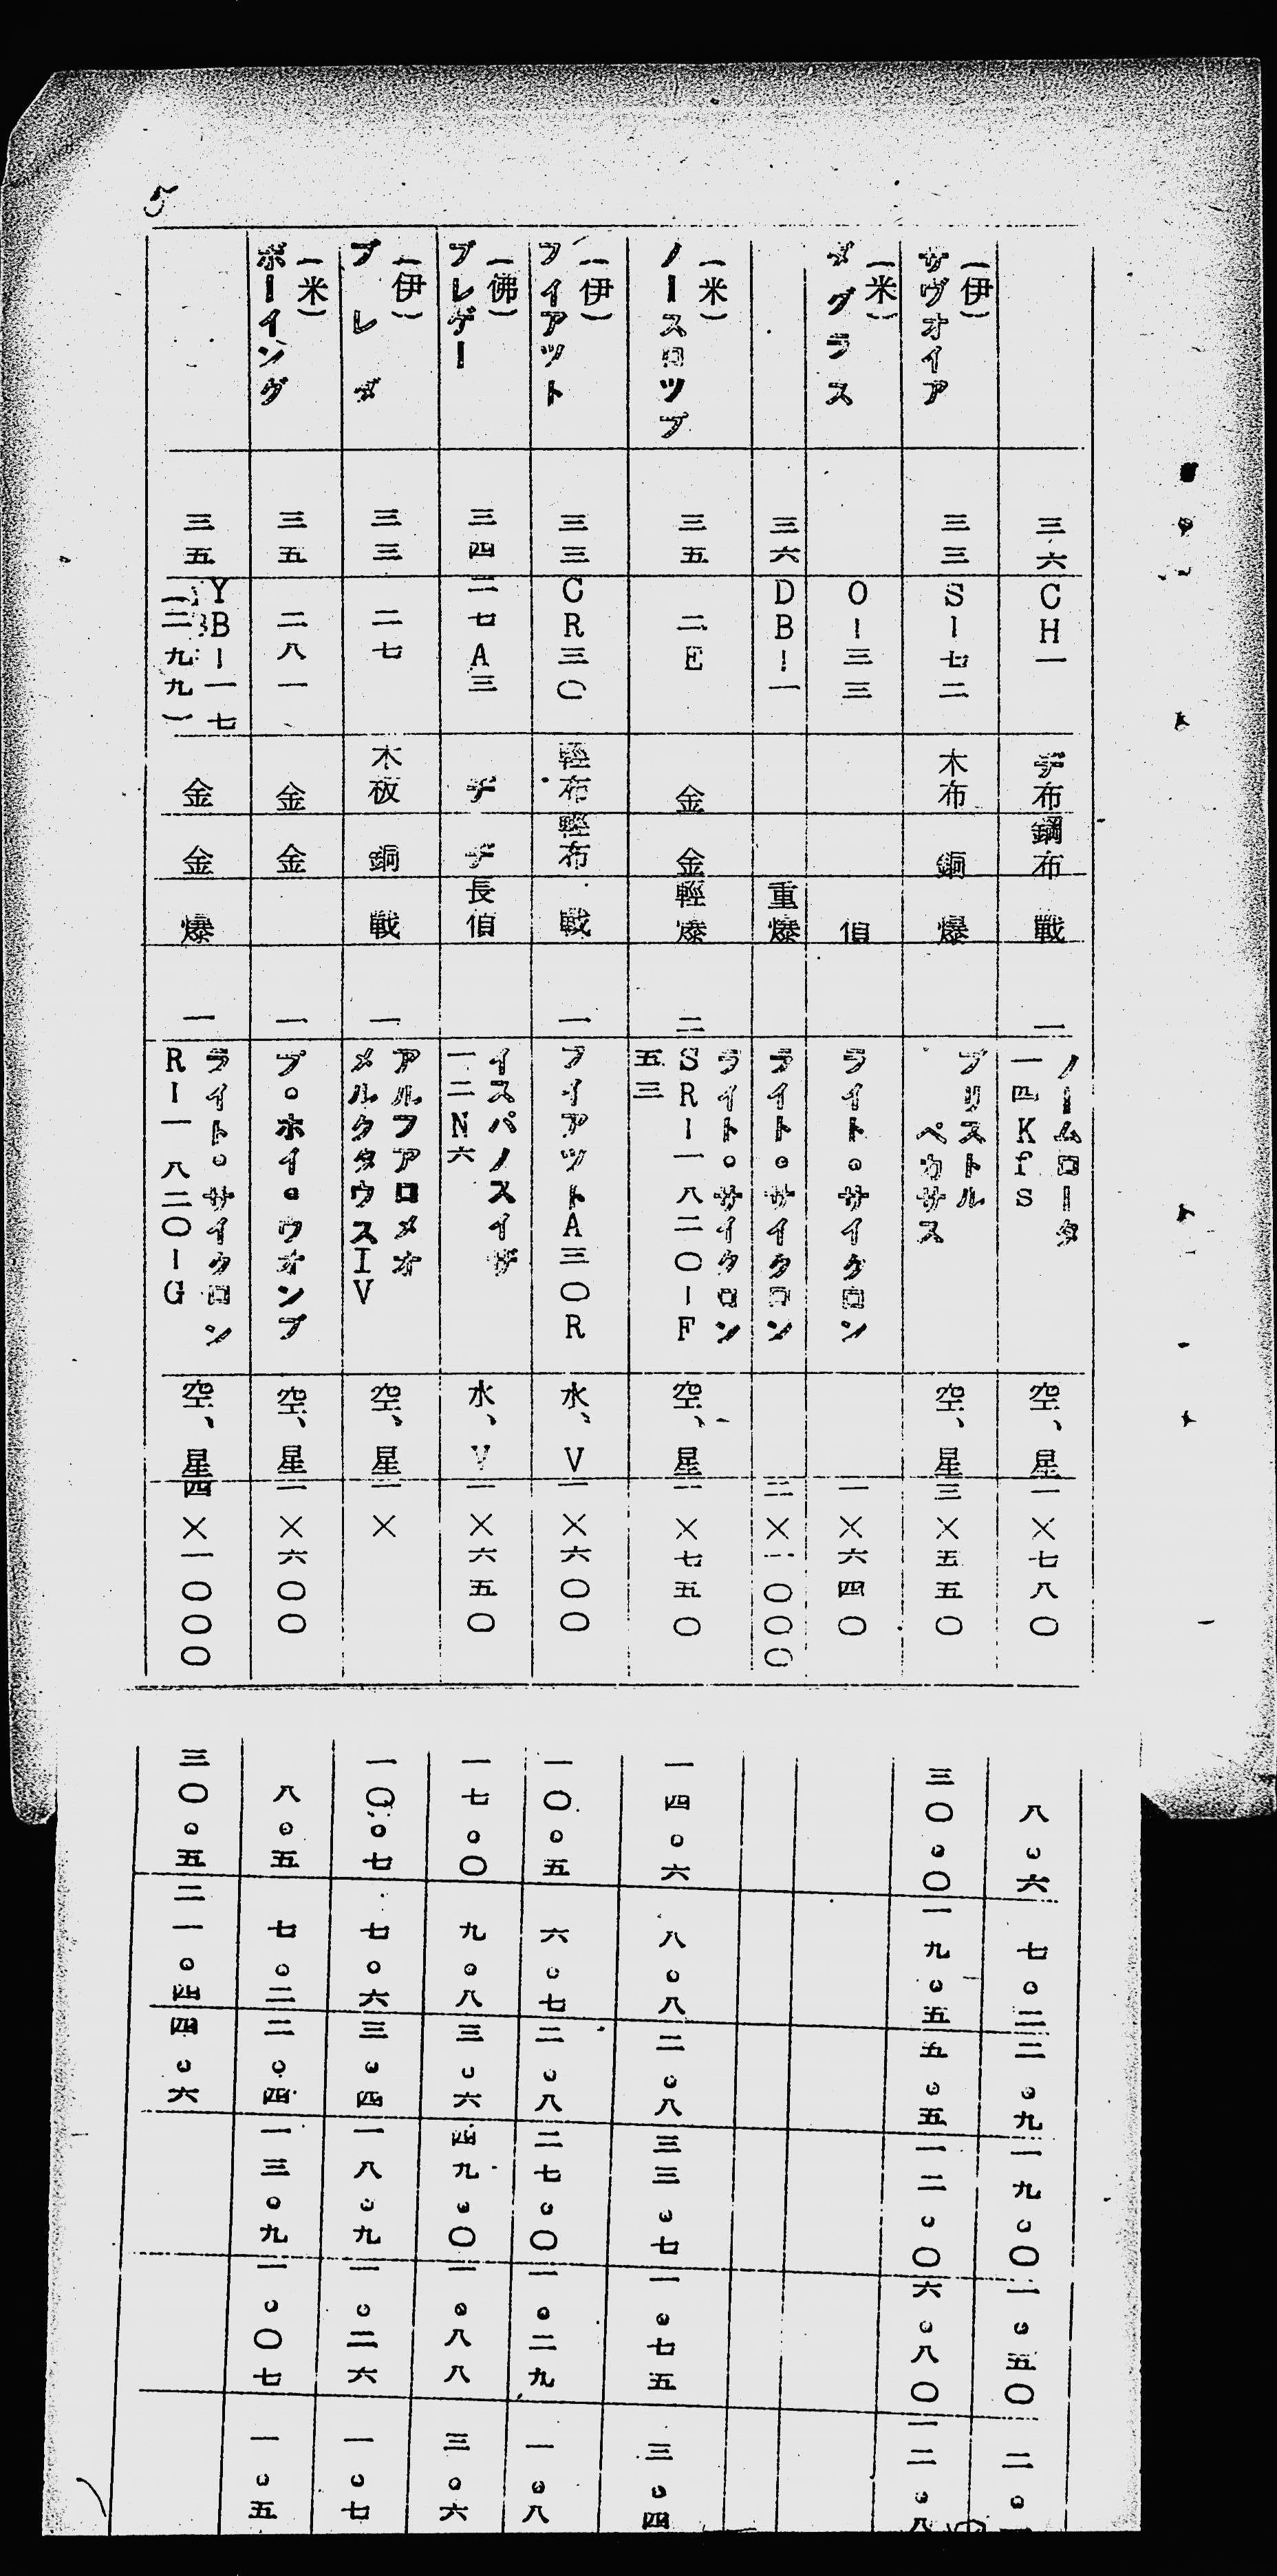 5
三六 CH一 ヂ布 鋼布 戰 一 ノームロータ 一四Kfs 空、星 一×七八〇 八。六 七。三 二。九 一九。〇 一。五〇
サヴオイア(伊) 三三 S-七二 木布 鋼 爆 ブリストル ペガサス 空、星 三×五五〇 三〇。〇 一九。五 五。五 一二〇。〇 六。八〇 一二。八
ダグラス(米) O-三三 偵 ライト。サイクロン 一×六四〇
三六 DB-一 重爆 ライト。サイクロン 二×一〇〇〇
ノースロツプ(米) 三五 二E 金 金 輕爆 二 ライト。サイクロン SR-一八二〇-F五三 空、星 一×七五〇 一四。六 八。八 二。八 三三。七 一。七五 三。四
フイアツト(伊) 三三 CR三〇 輕布 輕布 戰 一 フイアツトA三〇R 水、V 一×六〇〇 一〇。五 六。七 二。八 二七。〇 一。二九 一。八
ブレゲー(佛) 三四 二七A三 ヂ ヂ 長偵 イスパノスイザ 一二N六 水、V 一×六五〇 一七。〇 九。八 三。六 四九。〇 一。八八 三。六
ブレダ(伊) 三三 二七 木板 鋼 戰 一 アルフアロメオ メルクタウスIV 空、星 一× 一〇。七 七。六 三。四 一八。九 一。二六 一。七
ボーイング(米) 三五 二八一 金 金 一 プ。ホイ。ウオンプ 空、星 一×六〇〇 八。五 七。二 二。四 一三。九 一。〇七 一。五
三五 YB-一七(二九九) 金 金 爆 一 ライト。サイクロン R-一八二〇-G 空、星 四×一〇〇〇 三〇。五 二一。四 四。六